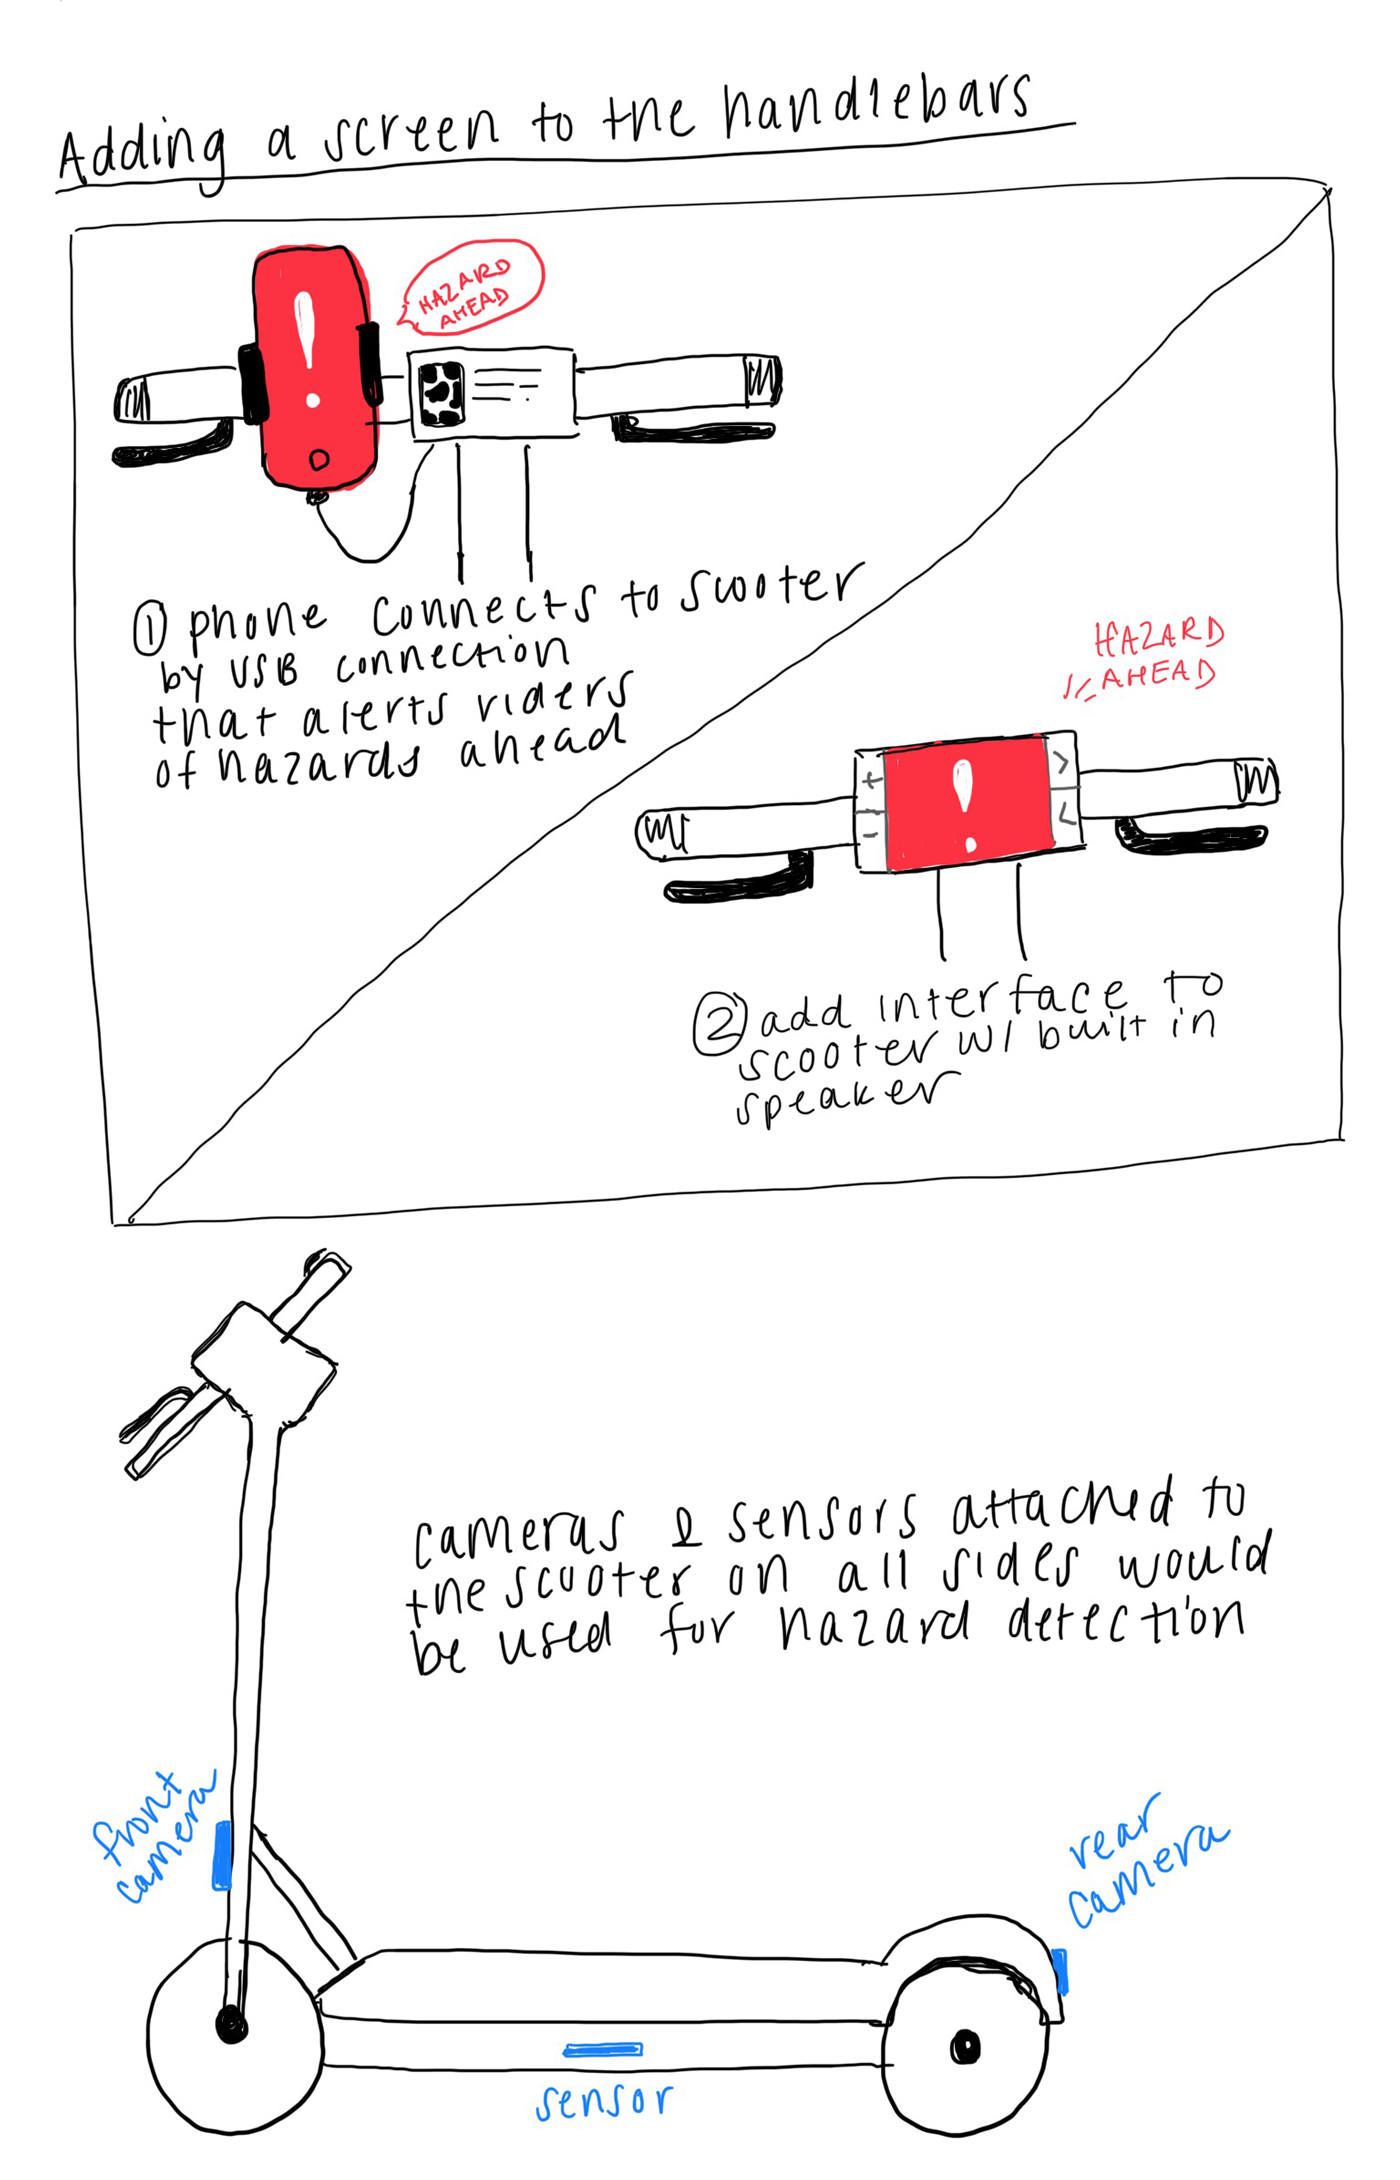 Adding a screen to the handlebars
HAZARD
AHEAD
① phone connects to scooter
by USB connection
that alerts riders
of hazards ahead
HAZARD
AHEAD
+
-
>
<
② add interface to
scooter w/ built in
speaker
cameras & sensors attached to
the scooter on all sides would
be used for hazard detection
front
camera
rear
camera
sensor